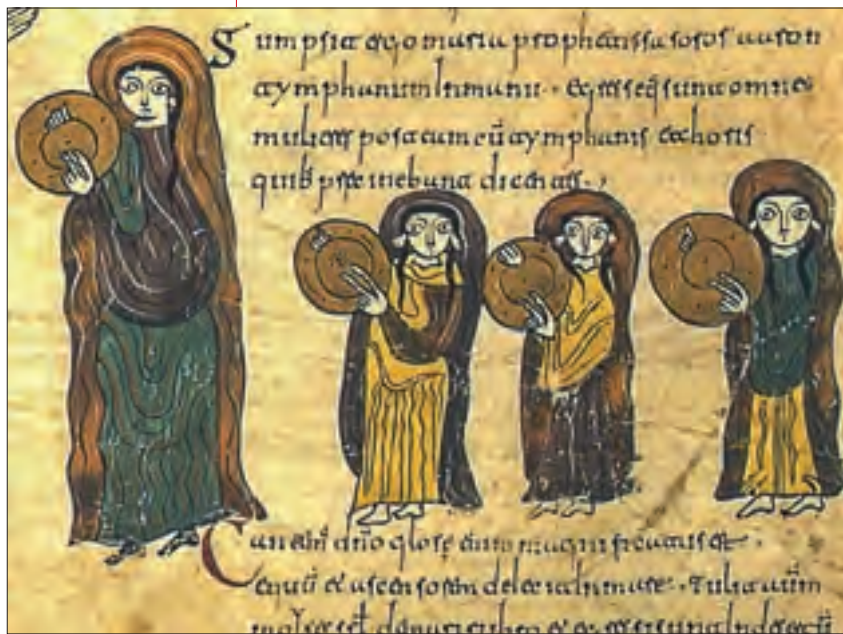 Sumpsit ergo maria prophetissa soror aaron
tymphanum In manu · egresseq sunt omnes
mulieres post eam cū tymphanis et choris
quib precinebat dicens ·
dno enim magnificatus est ·
equū et ascensorem deiecit In mare · Tulit
moyses de mari rubro et egressi sunt In desertū